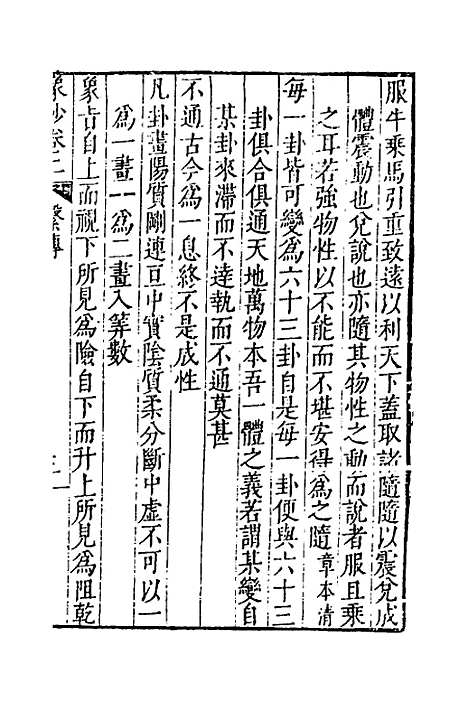 服牛乘馬引重致遠以利天下蓋取諸隨隨以震兌成
體震動也兌說也亦隨其物性之動而說者服且乘
之耳若強物性以不能而不堪安得爲之隨章本清
每一卦皆可變爲六十三卦自是每一卦便與六十三
卦俱合俱通天地萬物本吾一體之義若謂某變自
某卦來滯而不達執而不通莫甚
不通古今爲一息終不是成性
凡卦畫陽質剛連亘中實陰質柔分斷中虛不可以一
爲一畫一爲二畫入筭數
象吉自上而視下所見爲險自下而升上所見爲阻乾
象抄卷二
繫傳